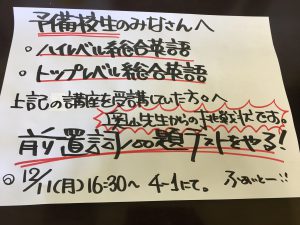 予備校生のみなさんへ
・ハイレベル総合英語
・トップレベル総合英語
上記の講座を受講していた方々へ
岡山先生からの挑戦状です。
前置詞品題テストをやる!
◎12/11(月)16:30〜 4-1にて。ふぁいとー!!